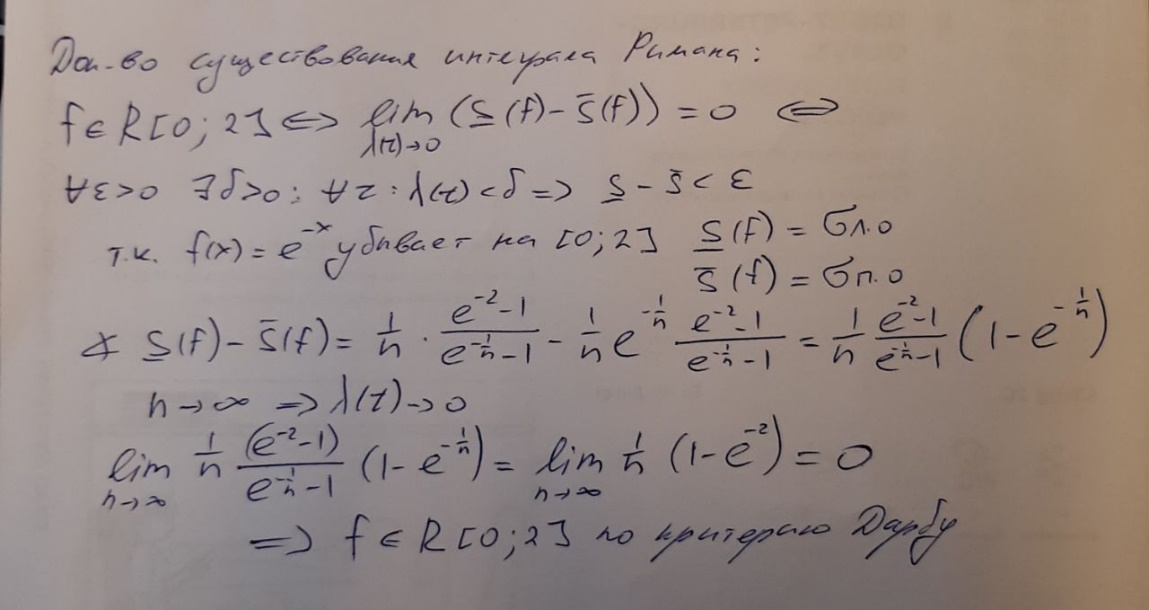 Док-во существования интеграла Римана:
f ∈ R[0; 2] ⇔ lim_{λ(τ)→0} (S̲(f) - S̅(f)) = 0 ⇔
∀ε>0 ∃δ>0: ∀τ: λ(τ)<δ ⇒ S̲ - S̅ < ε
т.к. f(x) = e^{-x} убывает на [0; 2] S̲(f) = σл.о
S̅(f) = σп.о
∡ S̲(f) - S̅(f) = 1/n · (e^{-2}-1)/(e^{-1/n}-1) - 1/n e^{-1/n} (e^{-2}-1)/(e^{-1/n}-1) = 1/n (e^{-2}-1)/(e^{-1/n}-1) (1-e^{-1/n})
n→∞ ⇒ λ(τ)→0
lim_{n→∞} 1/n (e^{-2}-1)/(e^{-1/n}-1) (1-e^{-1/n}) = lim_{n→∞} 1/n (1-e^{-2}) = 0
⇒ f ∈ R[0; 2] по критерию Дарбу